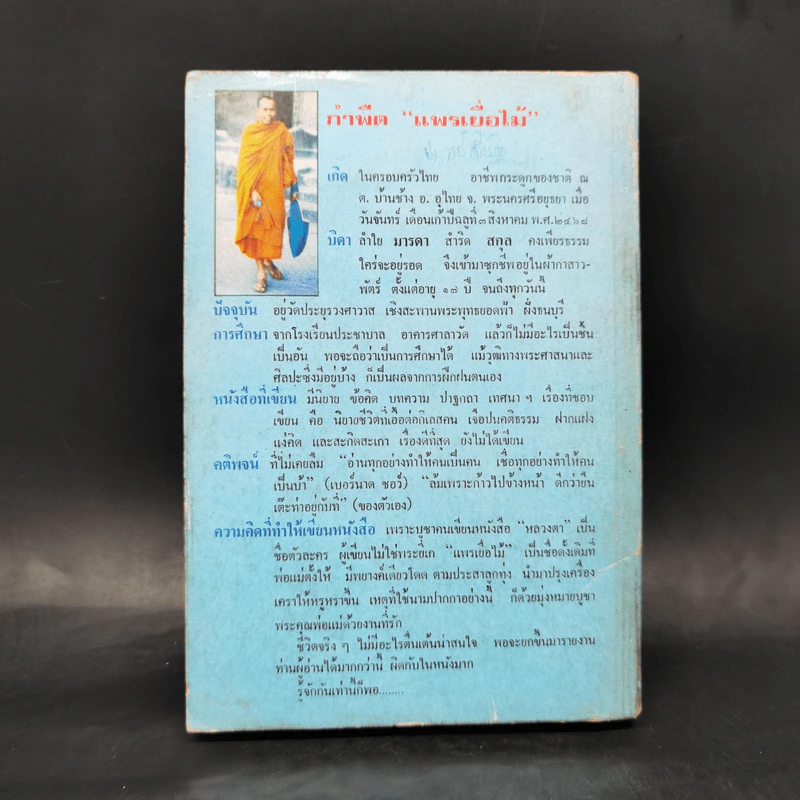 กำพืด "แพรเยื่อไม้"
เกิด ในครอบครัวไทย อาชีพกระดูกของชาติ ณ
ต. บ้านช้าง อ. อุไทย จ. พระนครศรีอยุธยา เมื่อ
วันจันทร์ เดือนเก้าปีฉลูที่๓สิงหาคม พ.ศ.๒๔๖๘
บิดา ลำใย มารดา สำริด สกุล คงเพียรธรรม
ใคร่จะอยู่รอด จึงเข้ามาซุกชีพอยู่ในผ้ากาสาว-
พัตร์ ตั้งแต่อายุ ๑๗ ปี จนถึงทุกวันนี้
ปัจจุบัน อยู่วัดประยุรวงศาวาส เชิงสะพานพระพุทธยอดฟ้า ฝั่งธนบุรี
การศึกษา จากโรงเรียนประชาบาล อาคารศาลาวัด แล้วก็ไม่มีอะไรเป็นชิ้น
เป็นอัน พอจะถือว่าเป็นการศึกษาได้ แม้วุฒิทางพระศาสนาและ
ศิลปะซึ่งมีอยู่บ้าง ก็เป็นผลจากการฝึกฝนตนเอง
หนังสือที่เขียน มีนิยาย ข้อคิด บทความ ปาฐกถา เทศนา ฯ เรื่องที่ชอบ
เขียน คือ นิยายชีวิตที่เอื้อต่อกิเลสคน เจือปนคติธรรม ฝากแฝง
แง่คิด และสะกิดสะเกา เรื่องดีที่สุด ยังไม่ได้เขียน
คติพจน์ ที่ไม่เคยลืม "อ่านทุกอย่างทำให้คนเป็นคน เชื่อทุกอย่างทำให้คน
เป็นบ้า" (เบอร์นาด ชอว์) "ล้มเพราะก้าวไปข้างหน้า ดีกว่ายืน
เต๊ะท่าอยู่กับที่" (ของตัวเอง)
ความคิดที่ทำให้เขียนหนังสือ เพราะบูชาคนเขียนหนังสือ "หลวงตา" เป็น
ชื่อตัวละคร ผู้เขียนไม่ใช่พระยี่เก "แพรเยื่อไม้" เป็นชื่อดั้งเดิมที่
พ่อแม่ตั้งให้ มีพยางค์เดียวโดด ตามประสาลูกทุ่ง นำมาปรุงเครื่อง
เคราให้หรูหราขึ้น เหตุที่ใช้นามปากกาอย่างนี้ ก็ด้วยมุ่งหมายบูชา
พระคุณพ่อแม่ด้วยงานที่รัก
ชีวิตจริง ๆ ไม่มีอะไรตื่นเต้นน่าสนใจ พอจะยกขึ้นมารายงาน
ท่านผู้อ่านได้มากกว่านี้ ผิดกับในหนังมาก
รู้จักกันเท่านี้ก็พอ........